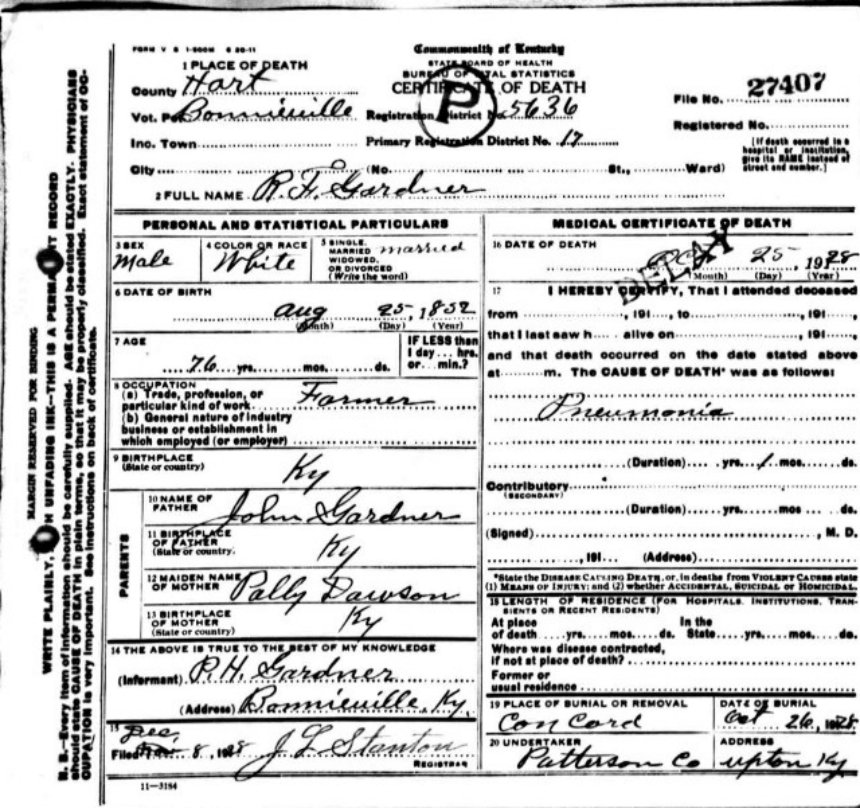 FORM V S 1-500M 6 26-11
Commonwealth of Kentucky
STATE BOARD OF HEALTH
BUREAU OF VITAL STATISTICS
CERTIFICATE OF DEATH
P
1 PLACE OF DEATH
County Hart
Vot. Pct. Bonnieville Registration District No. 5636
Inc. Town Primary Registration District No. 17
City (No. St., Ward)
File No. 27407
Registered No.
[If death occurred in a
hospital or institution,
give its NAME instead of
street and number.]
2 FULL NAME R. F. Gardner
PERSONAL AND STATISTICAL PARTICULARS
3 SEX
Male
4 COLOR OR RACE
White
5 SINGLE,
MARRIED
WIDOWED,
OR DIVORCED
(Write the word)
married
6 DATE OF BIRTH
Aug 25, 1852
(Month) (Day) (Year)
7 AGE
76 yrs. mos. ds.
IF LESS than
1 day hrs.
or min.?
8 OCCUPATION
(a) Trade, profession, or
particular kind of work Farmer
(b) General nature of industry
business or establishment in
which employed (or employer)
9 BIRTHPLACE
(State or country)
Ky
PARENTS
10 NAME OF
FATHER
John Gardner
11 BIRTHPLACE
OF FATHER
(State or country)
Ky
12 MAIDEN NAME
OF MOTHER
Pally Dawson
13 BIRTHPLACE
OF MOTHER
(State or country)
Ky
14 THE ABOVE IS TRUE TO THE BEST OF MY KNOWLEDGE
(Informant) R. H. Gardner
(Address) Bonnieville, Ky.
15
Dec,
Filed 8, 1928 J L Stanton
REGISTRAR
11-3184
MEDICAL CERTIFICATE OF DEATH
16 DATE OF DEATH
DELAY
Oct 25, 1928
(Month) (Day) (Year)
17 I HEREBY CERTIFY, That I attended deceased
from , 191 , to , 191 ,
that I last saw h alive on , 191 ,
and that death occurred on the date stated above
at m. The CAUSE OF DEATH* was as follows:
Pneumonia
(Duration) yrs. 1 mos. ds.
Contributory
(SECONDARY)
(Duration) yrs. mos. ds.
(Signed) , M. D.
, 191 (Address)
*State the DISEASE CAUSING DEATH, or, in deaths from VIOLENT CAUSES state
(1) MEANS OF INJURY; and (2) whether ACCIDENTAL, SUICIDAL or HOMICIDAL.
18 LENGTH OF RESIDENCE (FOR HOSPITALS, INSTITUTIONS, TRAN-
SIENTS OR RECENT RESIDENTS)
At place In the
of death yrs. mos. ds. State yrs. mos. ds.
Where was disease contracted,
if not at place of death?
Former or
usual residence
19 PLACE OF BURIAL OR REMOVAL
Con Cord
DATE OF BURIAL
Oct 26, 1928
20 UNDERTAKER
Patterson Co
ADDRESS
upton Ky
MARGIN RESERVED FOR BINDING
WRITE PLAINLY, UNFADING INK—THIS IS A PERMANENT RECORD
N. B.—Every item of information should be carefully supplied. AGE should be stated EXACTLY. PHYSICIANS
should state CAUSE OF DEATH in plain terms, so that it may be properly classified. Exact statement of OC-
CUPATION is very important. See instructions on back of certificate.